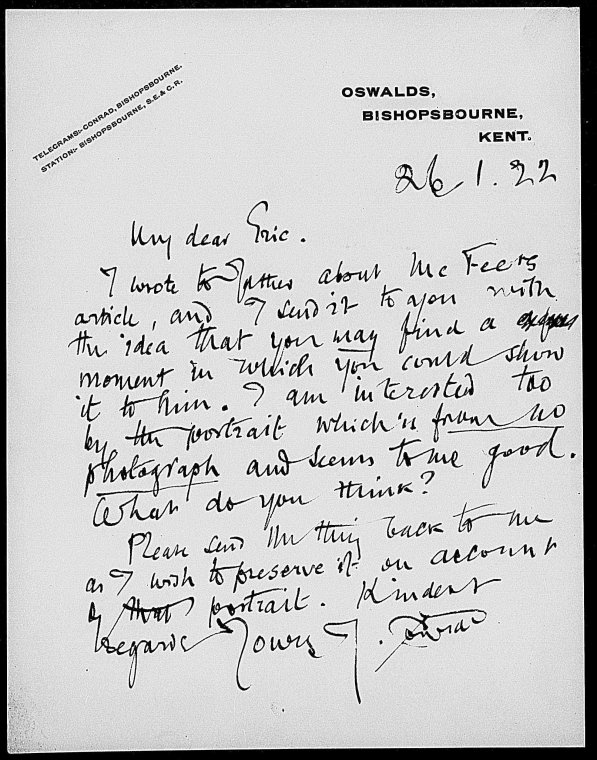 TELEGRAMS:- CONRAD, BISHOPSBOURNE.
STATION:- BISHOPSBOURNE, S.E. & C.R.
OSWALDS,
BISHOPSBOURNE,
KENT.
26 1. 22
My dear Eric.
I wrote to father about Mc Fee's
article, and I send it to you with
the idea that you may find a
moment in which you could show
it to him. I am interested too
by the portrait which is from no
photograph and seems to me good.
What do you think?
Please send the thing back to me
as I wish to preserve it on account
of that portrait. Kindest
regards Yours J. Conrad